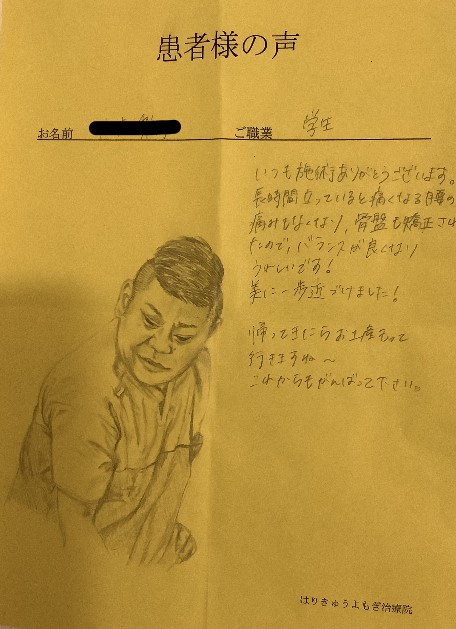 患者様の声
お名前
ご職業 学生
いつも施術ありがとうございます。
長時間立っていると痛くなる腰の
痛みもなくなり、骨盤も矯正され
たので、バランスが良くなり
うれしいです!
美に一歩近づけました!
帰ってきたらお土産もって
行きますね〜
これからもがんばって下さい。
はりきゅうよもぎ治療院